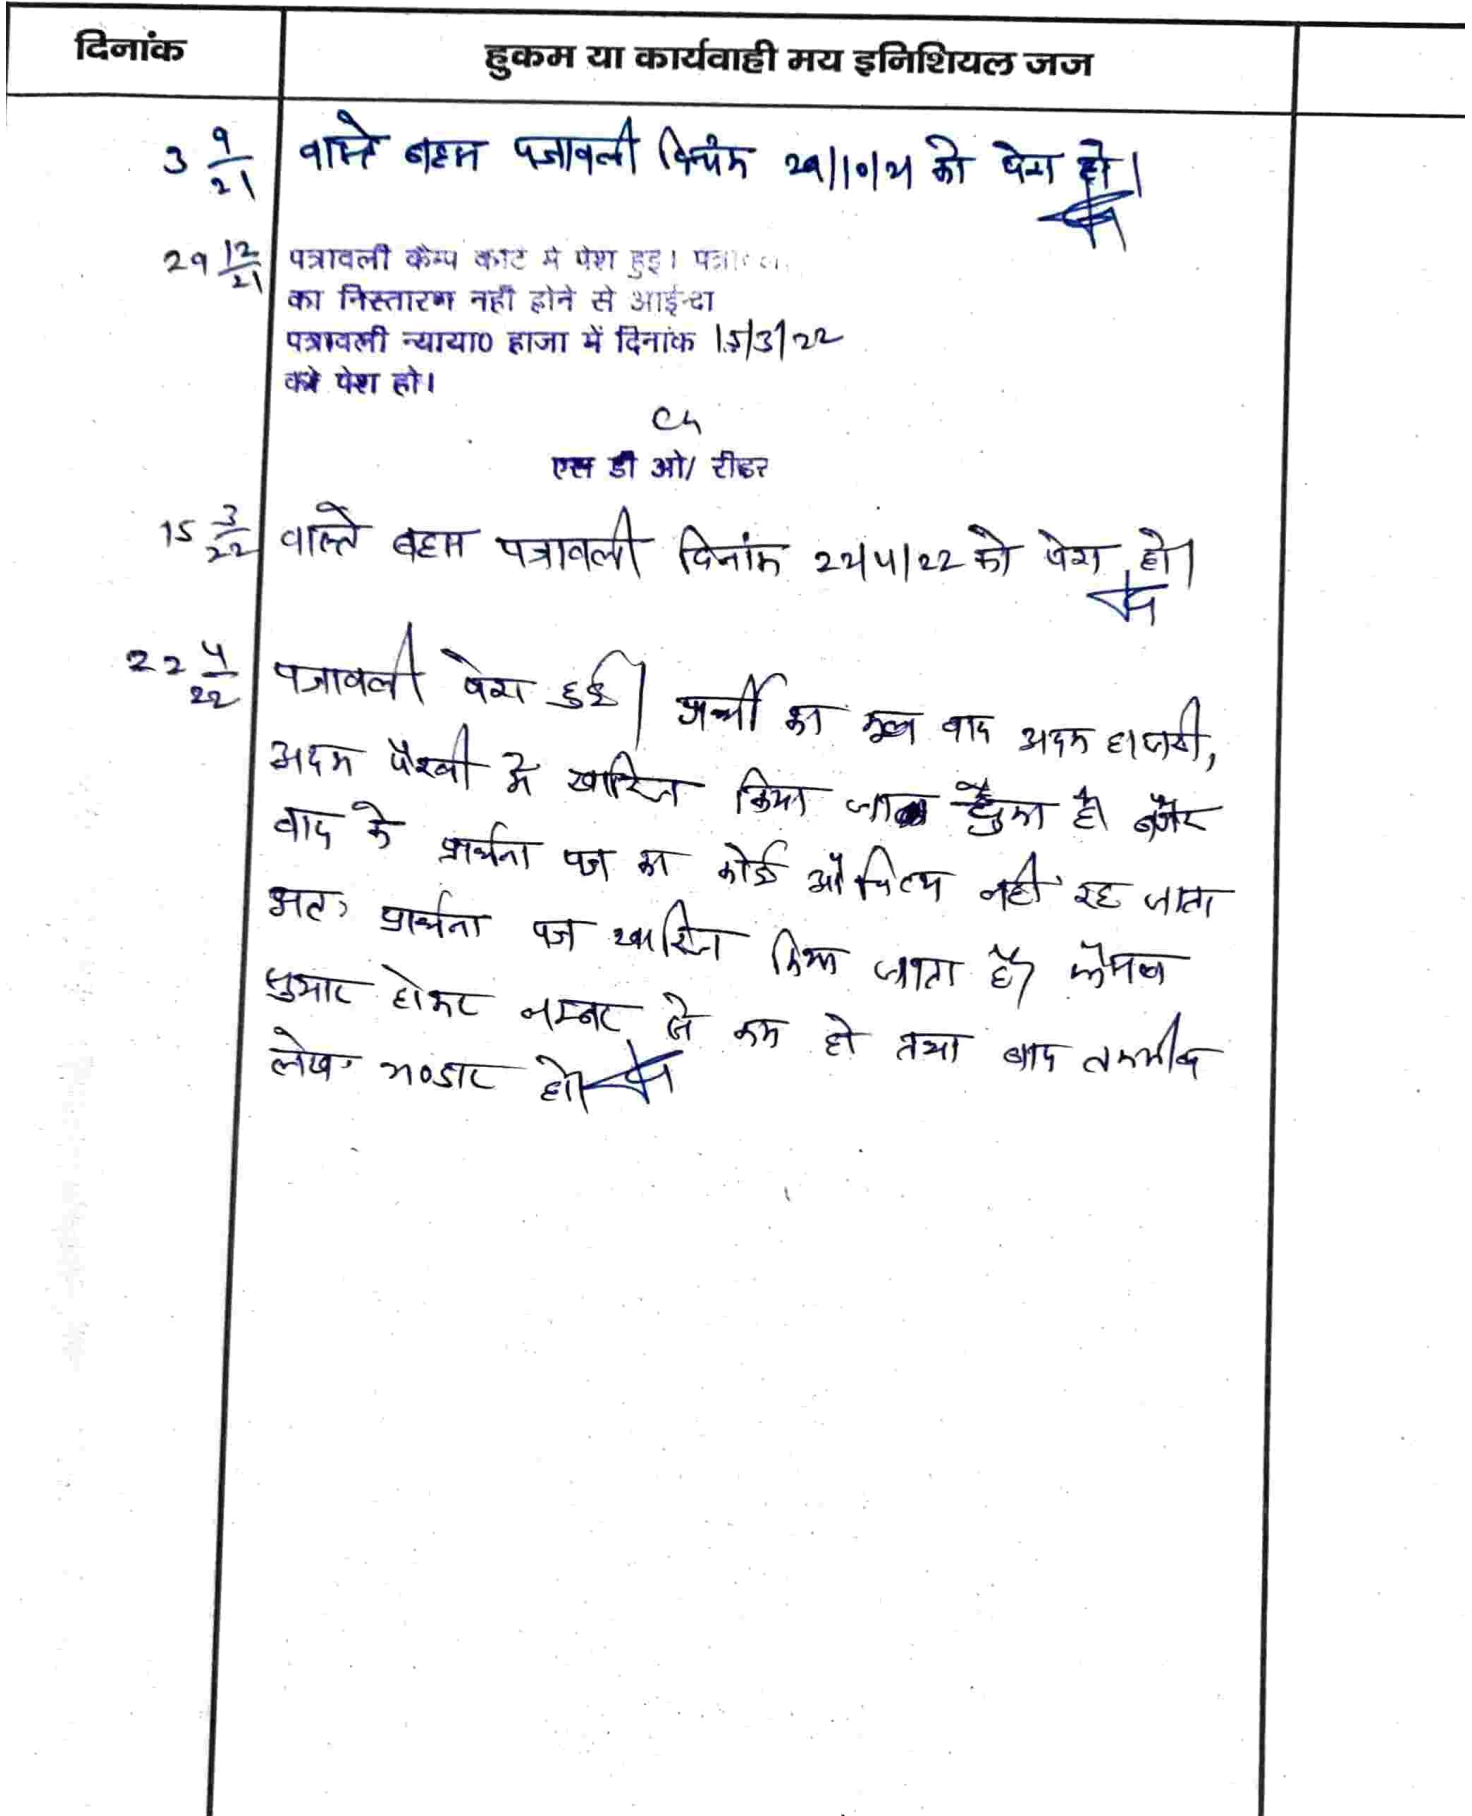 दिनांक
हुकम या कार्यवाही मय इनिशियल जज
3 9/21 वास्ते बहस पत्रावली दिनांक 29/10/21 को पेश हो।
29 12/21 पत्रावली कैम्प कोर्ट मे पेश हुइ। पत्रावली
का निस्तारण नही होने से आईन्दा
पत्रावली न्याया0 हाजा में दिनांक 15/3/22
को पेश हो।
एस डी ओ/ रीडर
15 3/22 वास्ते बहस पत्रावली दिनांक 22/4/22 को पेश हो।
22 4/22 पत्रावली पेश हुई। प्रार्थी का मूल वाद अदम हाजरी,
अदम पैरवी में खारिज किया जा चुका है। बगैर
वाद के प्रार्थना पत्र का कोई औचित्य नहीं रह जाता
अतः प्रार्थना पत्र खारिज किया जाता है। फैसल
शुमार होकर नम्बर से कम हो तथा बाद तकमील
लेख भण्डार हो।